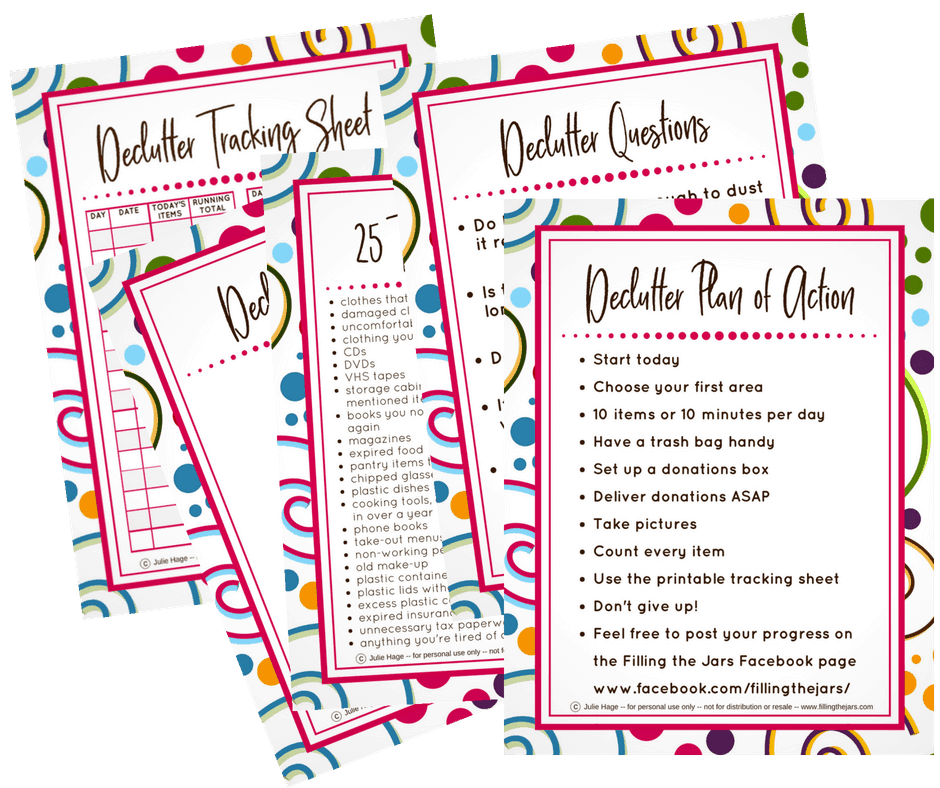 Declutter Tracking Sheet
DAY DATE TODAY'S ITEMS RUNNING TOTAL
© Julie Hage --
25
• clothes that
• damaged cl
• uncomfortal
• clothing you
• CDs
• DVDs
• VHS tapes
• storage cabin
mentioned ite
• books you no
again
• magazines
• expired food
• pantry items t
• chipped glasse
• plastic dishes
• cooking tools,
in over a year
• phone books
• take-out menus
• non-working pe
• old make-up
• plastic containe
• plastic lids with
• excess plastic c
• expired insuran
• unnecessary tax paperw
• anything you're tired of
© Julie Hage -- for personal use only -- not fo
Declutter Questions
to dust
• Do
it
• Is
lo
• D
© Julie Hage
Declutter Plan of Action
• Start today
• Choose your first area
• 10 items or 10 minutes per day
• Have a trash bag handy
• Set up a donations box
• Deliver donations ASAP
• Take pictures
• Count every item
• Use the printable tracking sheet
• Don't give up!
• Feel free to post your progress on
the Filling the Jars Facebook page
www.facebook.com/fillingthejars/
© Julie Hage -- for personal use only -- not for distribution or resale -- www.fillingthejars.com